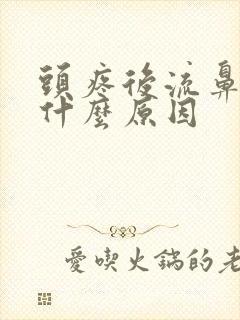 頭疼後流鼻
什麼原因
愛喫火鍋的老